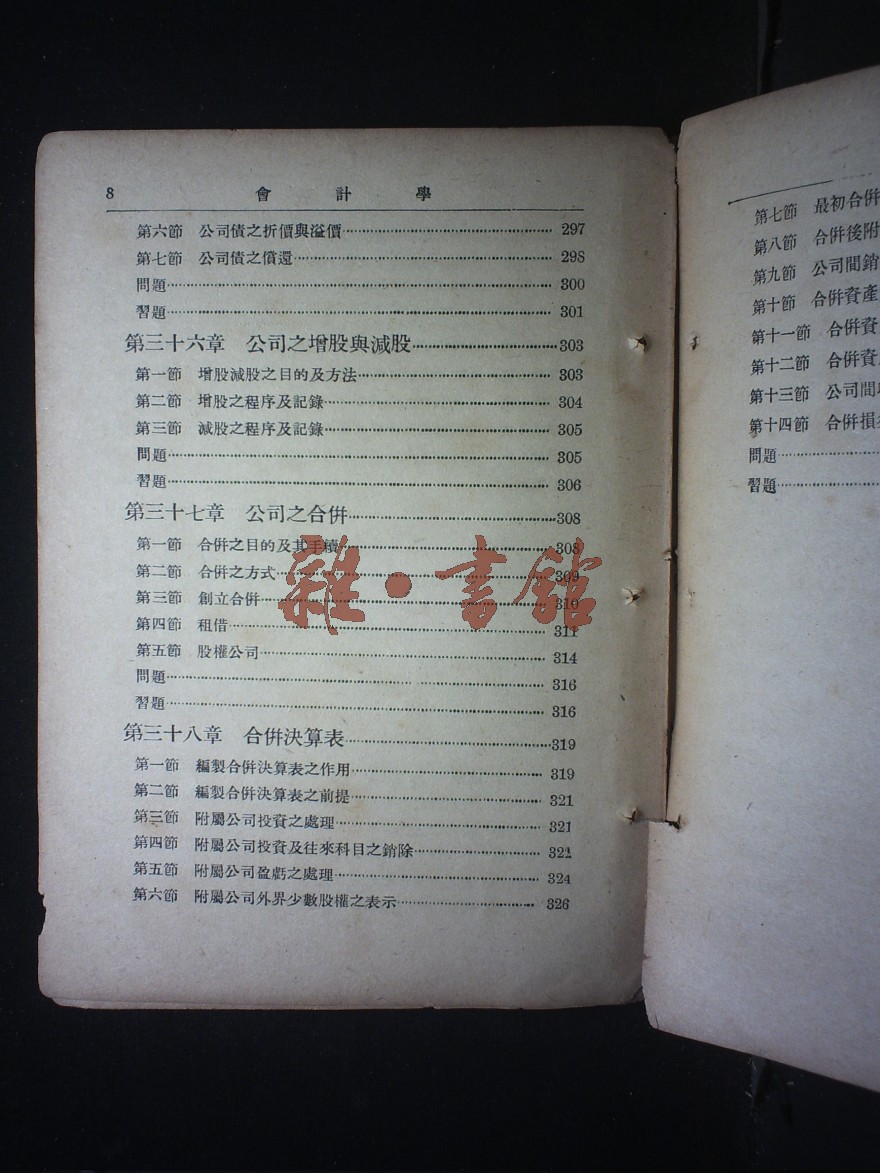 8 會計學
第六節 公司債之折價與溢價 297
第七節 公司債之償還 298
問題 300
習題 301
第三十六章 公司之增股與減股 303
第一節 增股減股之目的及方法 303
第二節 增股之程序及記錄 304
第三節 減股之程序及記錄 305
問題 305
習題 306
第三十七章 公司之合併 308
第一節 合併之目的及其手續 308
第二節 合併之方式 309
第三節 創立合併 310
第四節 租借 311
第五節 股權公司 314
問題 316
習題 316
第三十八章 合併決算表 319
第一節 編製合併決算表之作用 319
第二節 編製合併決算表之前提 321
第三節 附屬公司投資之處理 321
第四節 附屬公司投資及往來科目之銷除 322
第五節 附屬公司盈虧之處理 324
第六節 附屬公司外界少數股權之表示 326
雜·書館
第七節 最初合併
第八節 合併後附
第九節 公司間銷
第十節 合併資產
第十一節 合併資
第十二節 合併資
第十三節 公司間
第十四節 合併損
問題
習題